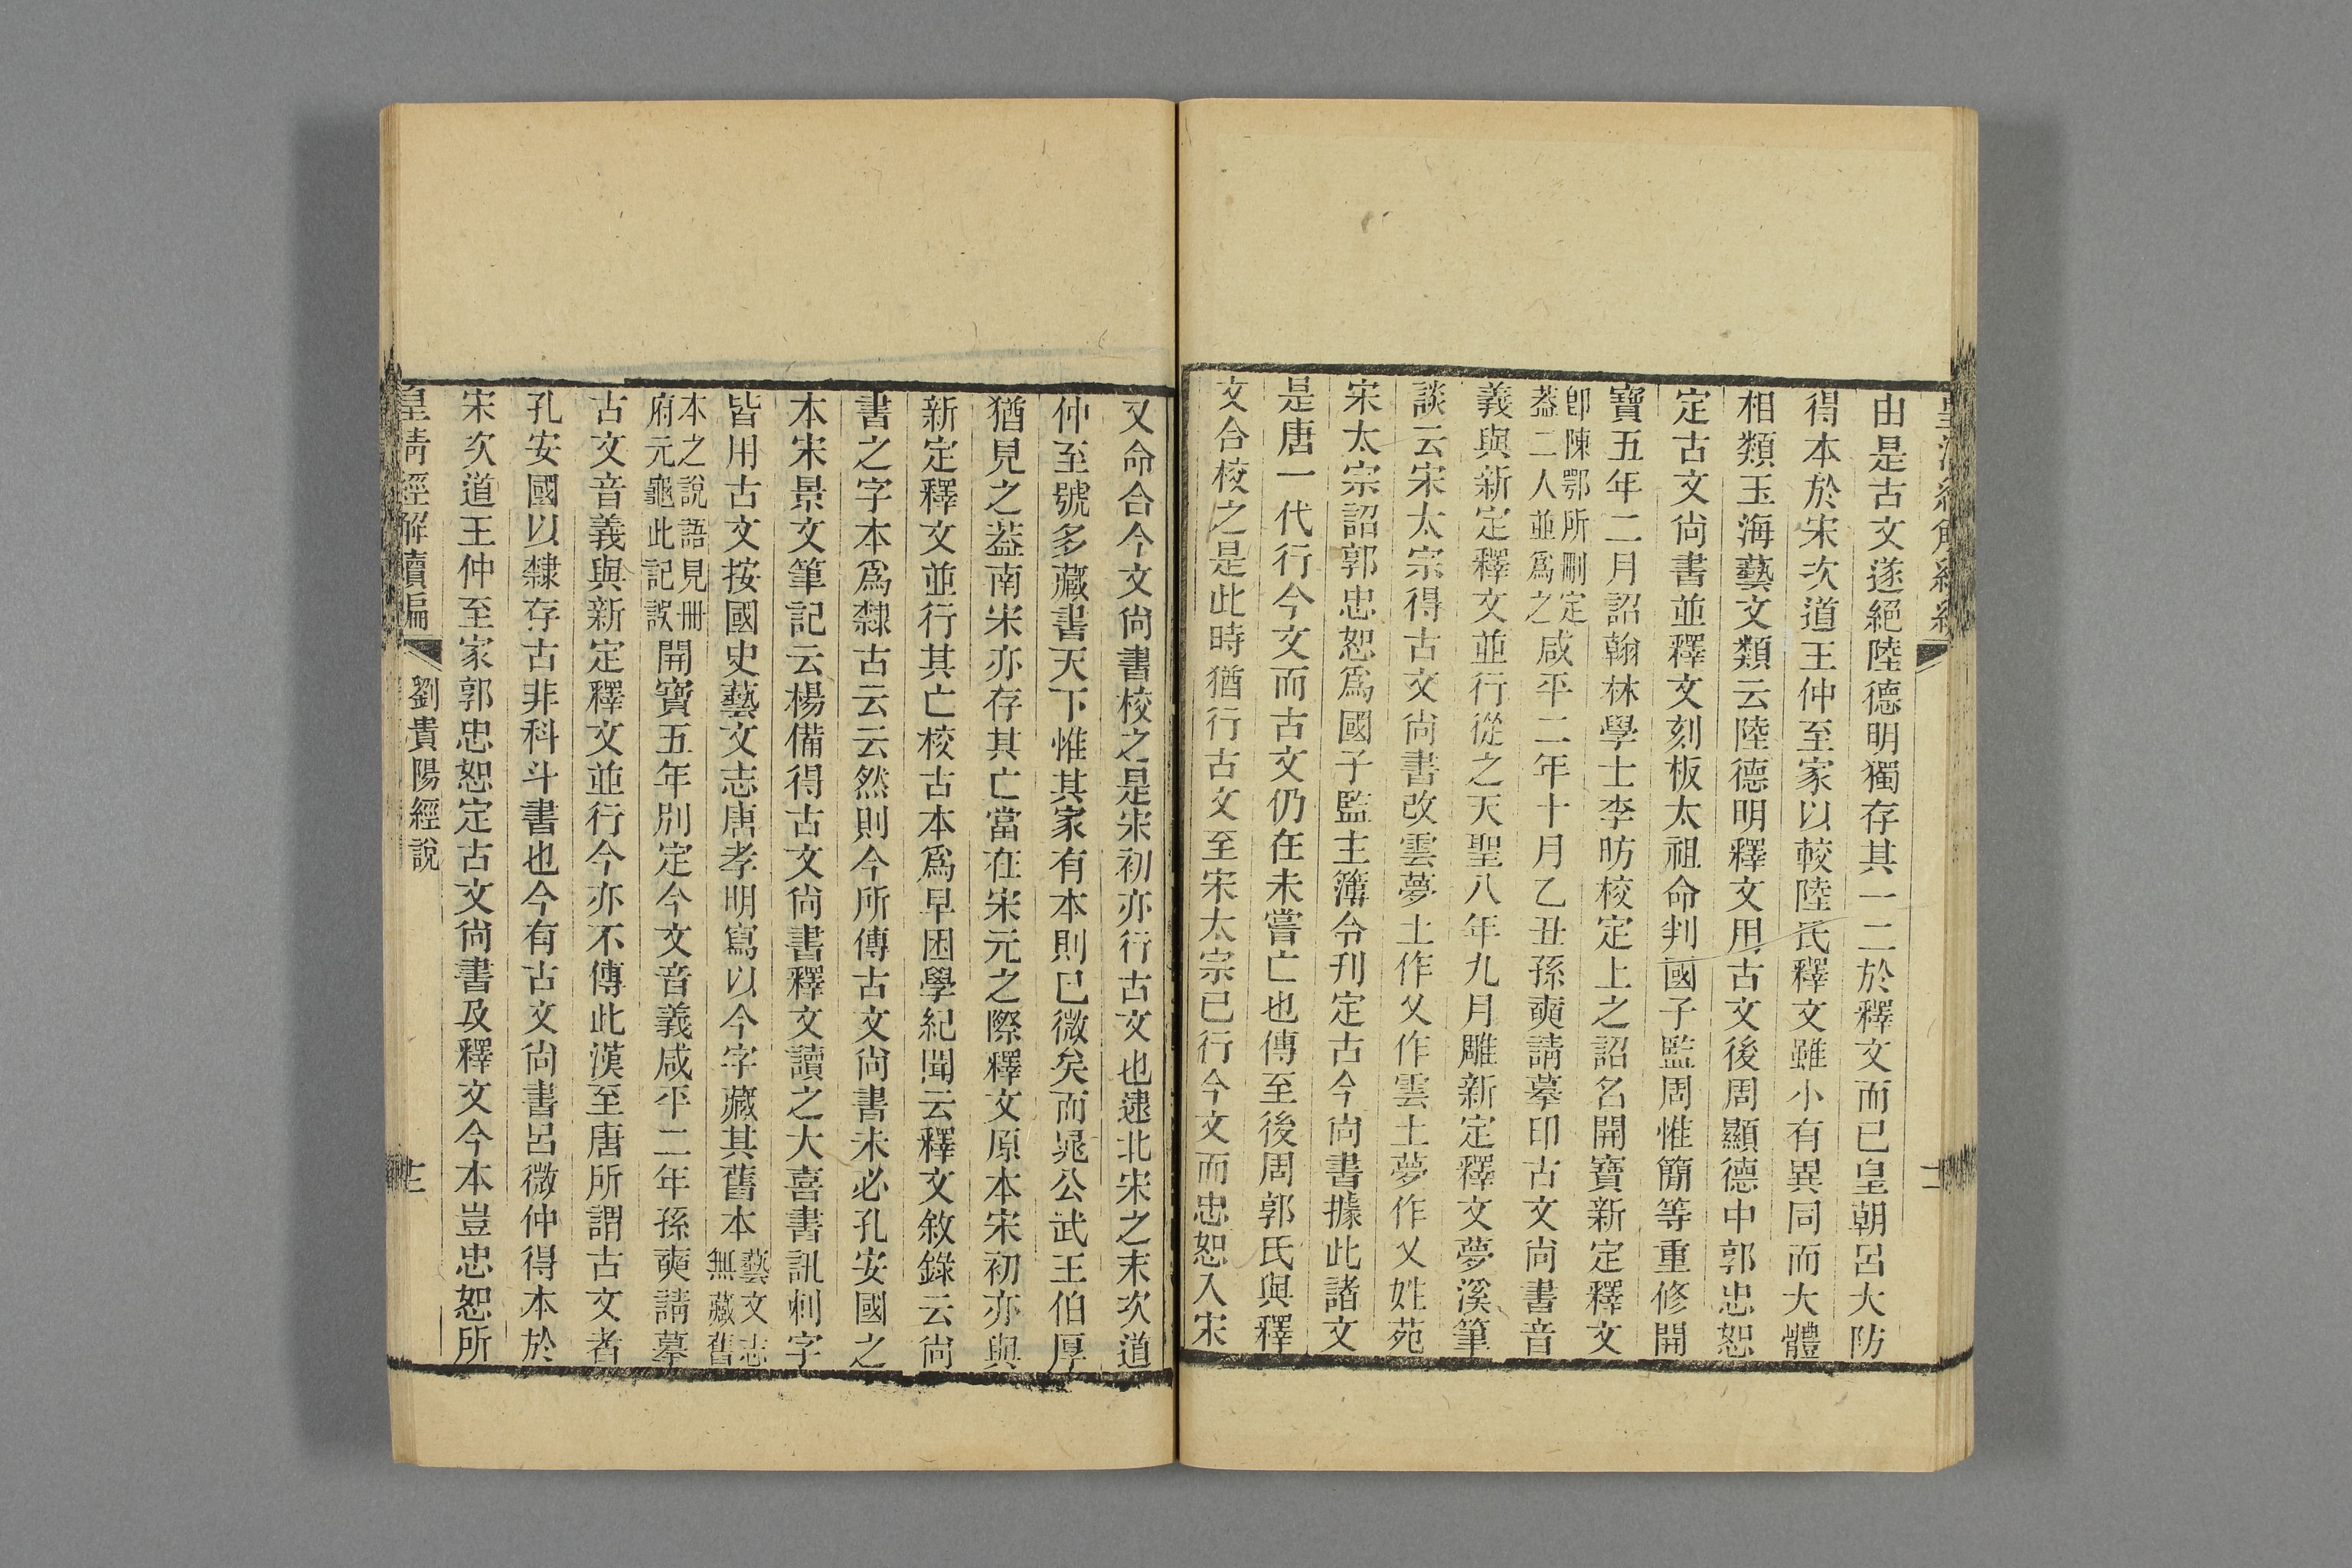 由是古文遂絕陸德明獨存其一二於釋文而已皇朝呂大防
得本於宋次道王仲至家以較陸氏釋文雖小有異同而大體
相類玉海藝文類云陸德明釋文用古文後周顯德中郭忠恕
定古文尙書並釋文刻板太祖命判國子監周惟簡等重修開
寶五年二月詔翰林學士李昉校定上之詔名開寶新定釋文
卽陳鄂所刪定
葢二人並爲之
咸平二年十月乙丑孫奭請摹印古文尙書音
義與新定釋文並行從之天聖八年九月雕新定釋文夢溪筆
談云宋太宗得古文尙書改雲夢土作乂作雲土夢作乂姓苑
宋太宗詔郭忠恕爲國子監主簿令刊定古今尙書據此諸文
是唐一代行今文而古文仍在未嘗亡也傳至後周郭氏與釋
文合校之是此時猶行古文至宋太宗已行今文而忠恕入宋
又命合今文尙書校之是宋初亦行古文也逮北宋之末次道
仲至號多藏書天下惟其家有本則已微矣而晁公武王伯厚
猶見之葢南宋亦存其亡當在宋元之際釋文原本宋初亦與
新定釋文並行其亡校古本爲早困學紀聞云釋文敘錄云尙
書之字本爲隸古云云然則今所傳古文尙書未必孔安國之
本宋景文筆記云楊備得古文尙書釋文讀之大喜書訊刺字
皆用古文按國史藝文志唐孝明寫以今字藏其舊本
藝文志
無藏舊
本之說語見冊
府元龜此記誤
開寶五年別定今文音義咸平二年孫奭請摹
古文音義與新定釋文並行今亦不傳此漢至唐所謂古文者
孔安國以隸存古非科斗書也今有古文尙書呂微仲得本於
宋次道王仲至家郭忠恕定古文尙書及釋文今本豈忠恕所
皇清經解續編
劉貴陽經說